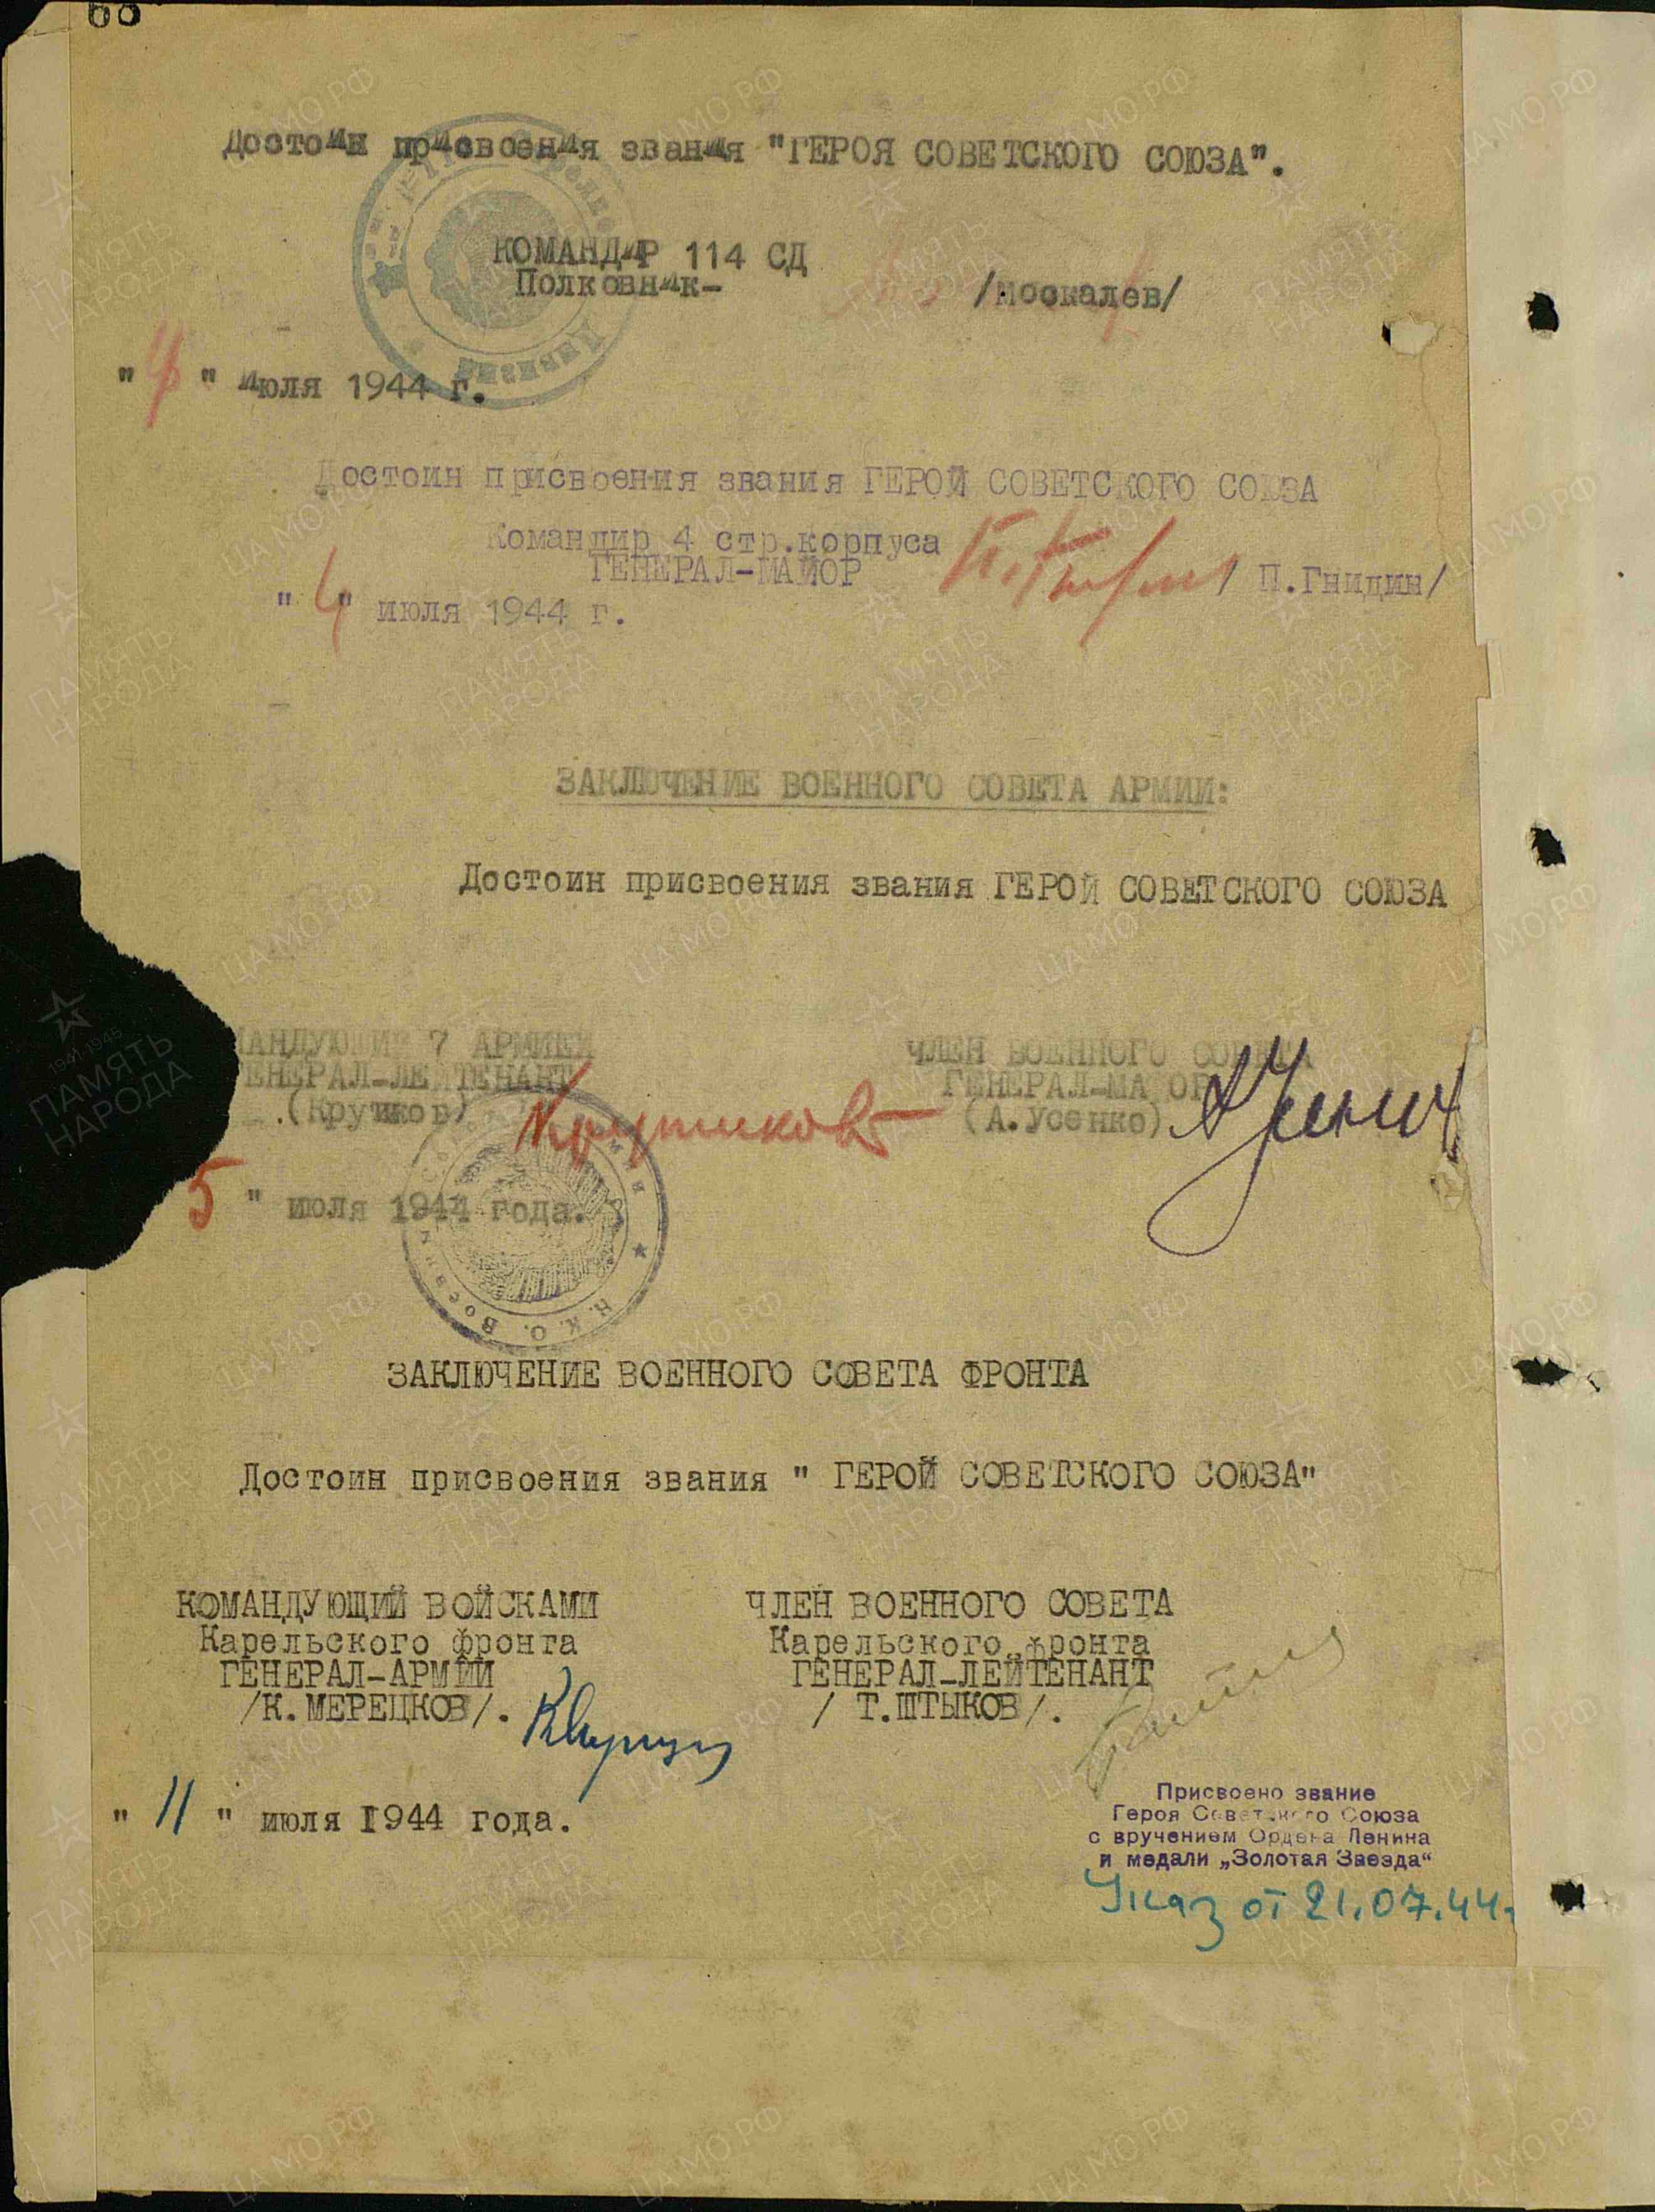 Достоин присвоения звания "ГЕРОЯ СОВЕТСКОГО СОЮЗА".
КОМАНДИР 114 СД
Полковник-
/Москалев/
"4" июля 1944 г.
Достоин присвоения звания ГЕРОЙ СОВЕТСКОГО СОЮЗА
Командир 4 стр.корпуса
ГЕНЕРАЛ-МАЙОР
/ П.Гнидин/
"4" июля 1944 г.
ЗАКЛЮЧЕНИЕ ВОЕННОГО СОВЕТА АРМИИ:
Достоин присвоения звания ГЕРОЙ СОВЕТСКОГО СОЮЗА
МАНДУЮЩИЙ 7 АРМИЕЙ
ЕНЕРАЛ-ЛЕЙТЕНАНТ
(Крутиков) Крутиков
ЧЛЕН ВОЕННОГО СОВЕТА
ГЕНЕРАЛ-МАЙОР
(А.Усенко)
5 " июля 1944 года.
Н.К.О.
ЗАКЛЮЧЕНИЕ ВОЕННОГО СОВЕТА ФРОНТА
Достоин присвоения звания " ГЕРОЙ СОВЕТСКОГО СОЮЗА"
КОМАНДУЮЩИЙ ВОЙСКАМИ
Карельского фронта
ГЕНЕРАЛ-АРМИИ
/К.МЕРЕЦКОВ/.
ЧЛЕН ВОЕННОГО СОВЕТА
Карельского фронта
ГЕНЕРАЛ-ЛЕЙТЕНАНТ
/ Т.ШТЫКОВ/.
" 11 " июля 1944 года.
Присвоено звание
Героя Советского Союза
с вручением Ордена Ленина
и медали „Золотая Звезда“
Указ от 21.07.44г
ПАМЯТЬ НАРОДА
1941 1945
ЦА МО РФ